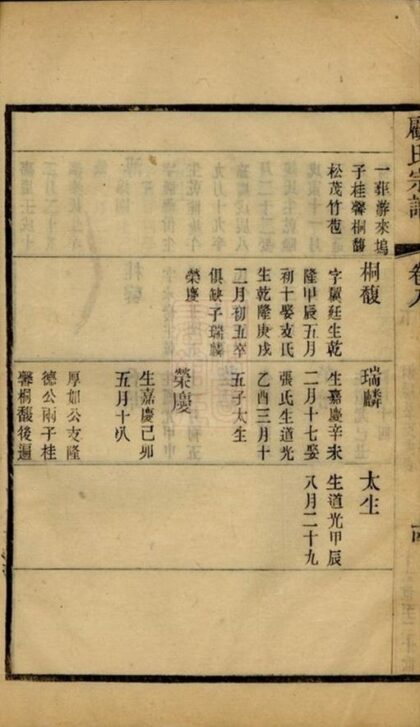 顧氏宗譜
卷八
一莊游來塢
子桂馨桐馥
松茂竹苞
桐馥
字翼廷生乾
隆甲辰五月
初十娶支氏
生乾隆庚戌
二月初五卒
俱缺子瑞麟
榮慶
瑞麟
生嘉慶辛未
二月十七娶
張氏生道光
乙酉三月十
五子太生
榮慶
生嘉慶己卯
五月十八
厚如公支隆
德公兩子桂
馨桐馥後遍
太生
生道光甲辰
八月二十九